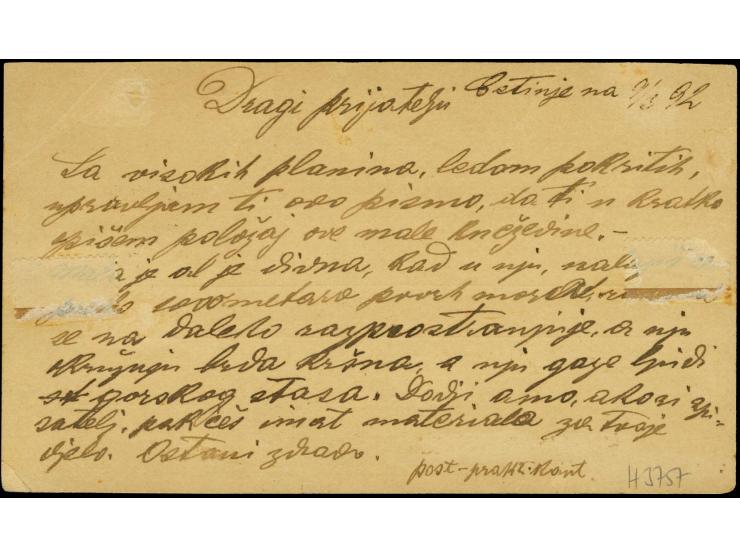 Dragi prijatelju Cetinje na 9/3 92
Sa visokih planina, ledom pokritih,
upravljam ti ovo pismo, da ti u kratko
pišem položaj ove male knežedine.-
a je al je divna, kad u nju,
metara povrh mor
se na daleko razprostranjuje, a nju
okružuju brda kršna, a nju gaze ljudi
gorskog stasa. Dodji amo, ako si spi-
satelj, pak ćeš imat materiala za tvoje
djelo. Ostani zdravo.
post-praktikant
H3757